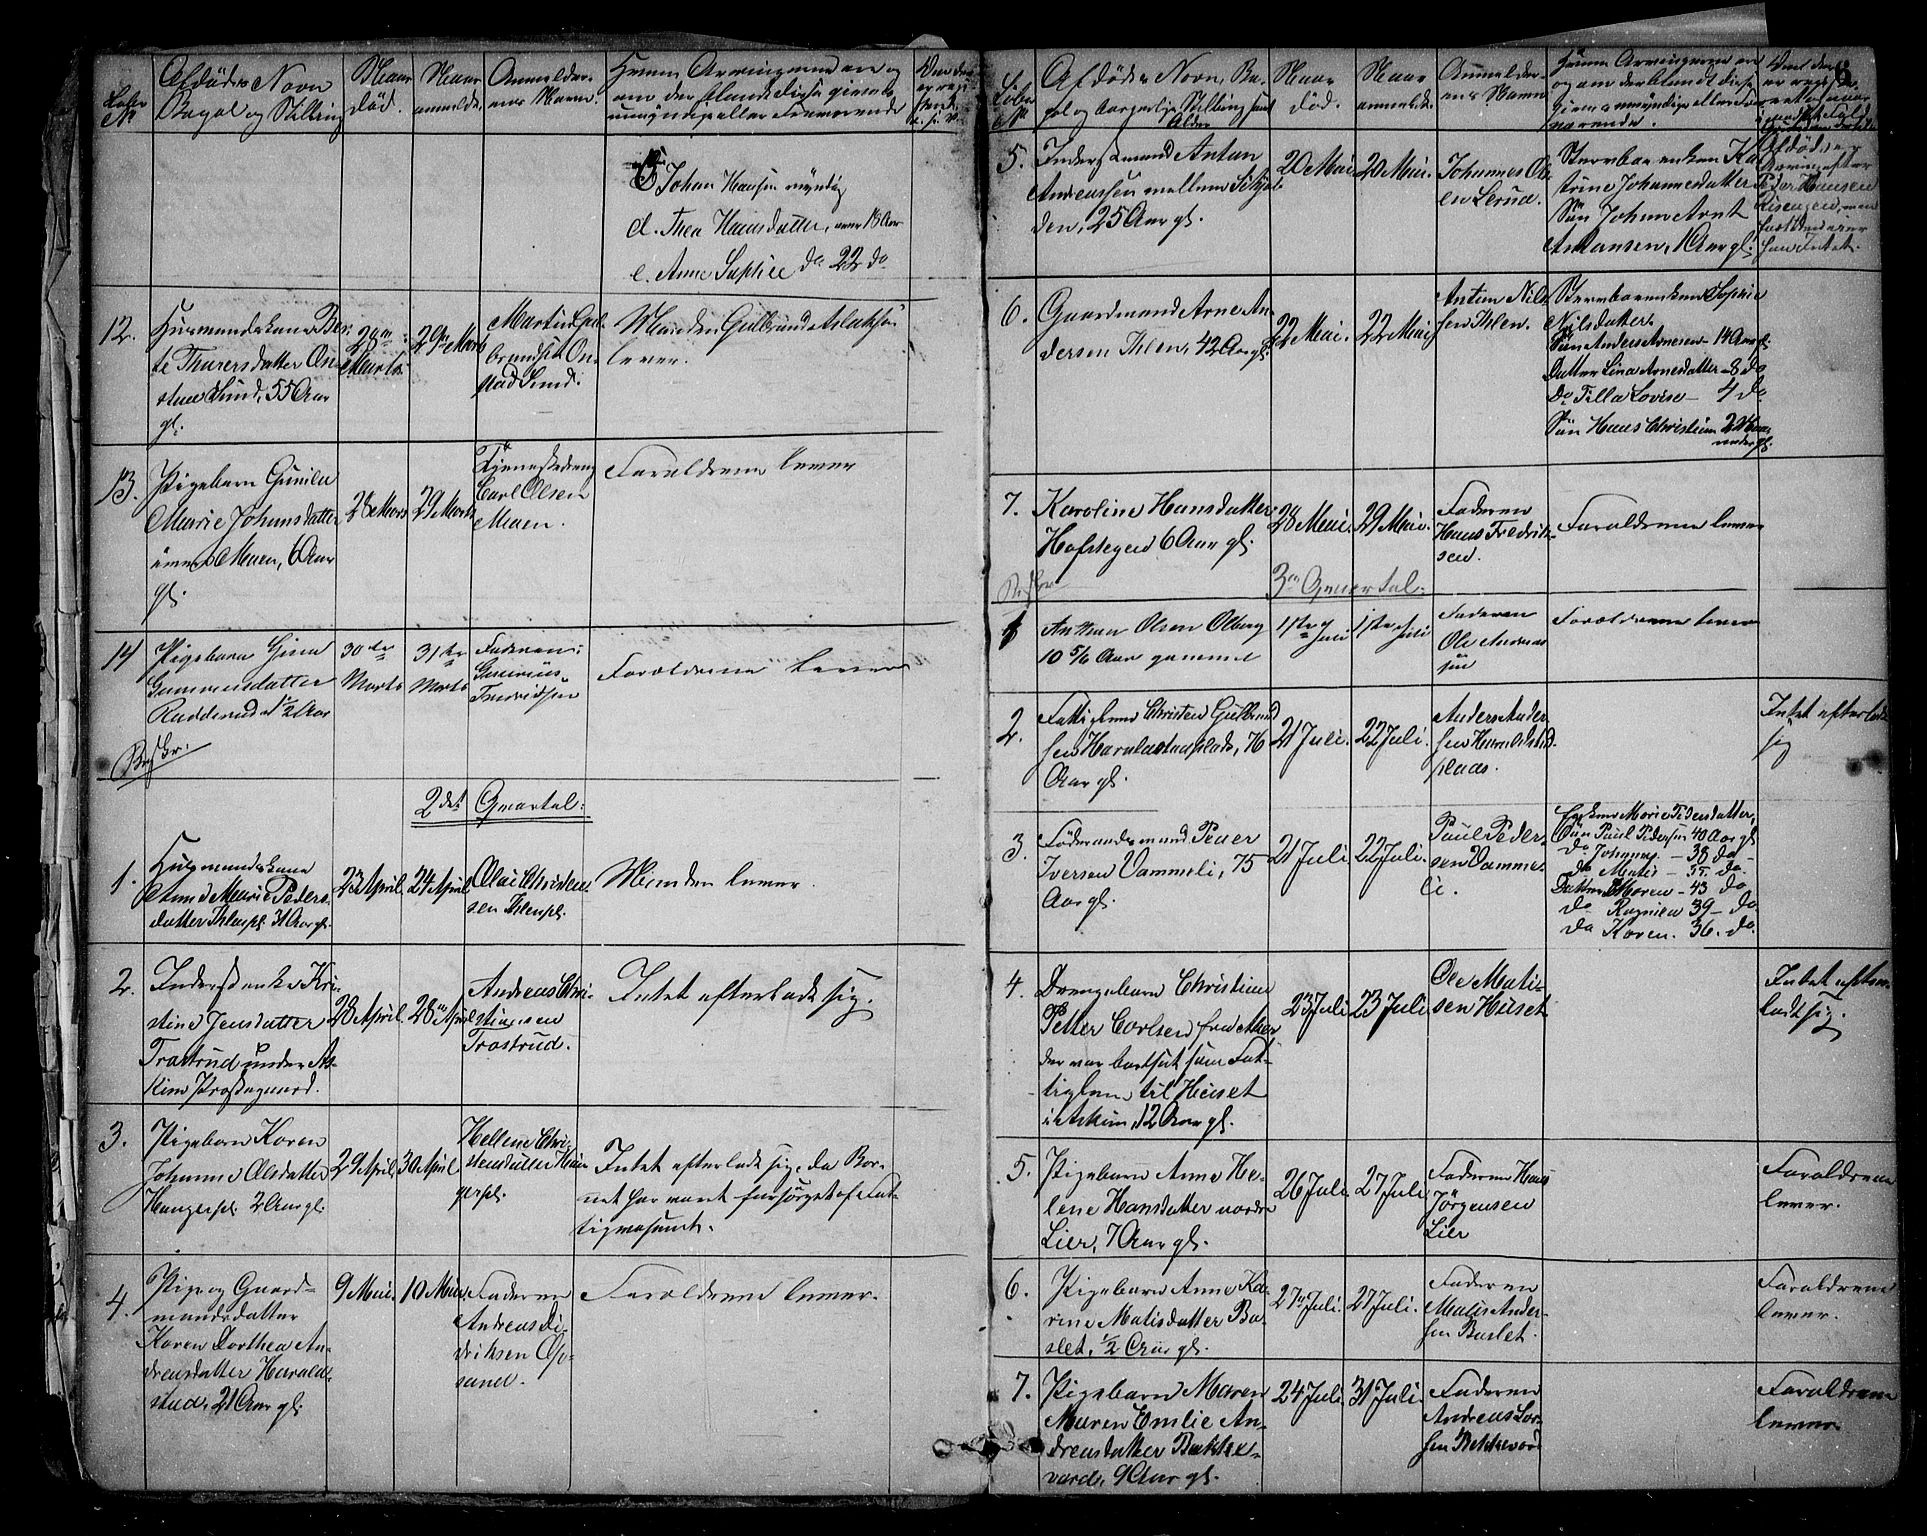 Løbe
No
Afdødes Navn
Bopæl og Stilling
Naar
død.
Naar
anmeldt.
Anmelder-
ens Navn.
Hvem Arvingerne er og
om der iblandt disse gives
umyndige eller Fraværende
Johan Hansen myndig
d. Thea Hansdatter, over 18 Aar
e. Anne Sophie do 22 do
12.
Husmandskone Ber-
te Thurersdatter On-
stad Lund, 55 Aar
gl.
28de
Marts.
29de Marts
Martin Gul-
brandsen On-
stad Lund.
Manden Gulbrand Aslaksen
lever.
13.
Pigebarn Gunilu
Marie Johansdatter
Moen, 6 Aar
gl.
28 Marts
29 Marts
Tjenestedreng
Carl Olsen
Moen.
Foraldrene lever
14
Pigebarn Gina
Gunerusdatter
Rudderud 1/2 Aar
30te
Marts
31te
Marts
Faderen:
Gunerius
Fredriksen
Forældrene lever
2det Qvartal:
1.
Husmandskone
Anne Marie Peders-
datter Ihlenpl. 31 Aar gl.
23 April.
24 April
Olai Christen
sen Ihlenpl.
Manden lever.
2.
Inderstenke Kri-
stine Jensdatter
Trostrud under As-
kim Præstegaard.
28 April.
28de April
Andreas Chri-
stiansen
Trostrud.
Intet efterladt sig.
3.
Pigebarn Karen
Johanne Olsdatter
Hangerpl. 2 Aar gl.
29 April
30 April
Hellene Chri-
stensdatter Han-
gerpl.
Intet efterladt sig, da Bar-
net har været forsørget af Fat-
tigvæsenet.
4.
Pige og Gaard-
mandsdatter
Karen Dorthea An-
dreasdatter Harald-
stad, 21 Aar gl.
9 Mai.
10 Mai.
Faderen
Andreas Di-
driksen Op-
sand.
Foraldrene lever.
Løbe
No
Afdødes Navn, Bo-
pæl og borgerlige Stilling samt
Alder
Naar
død.
Naar
anmeldt.
Anmelder-
ens Navn
Hvem Arvingerne ere
og om der blandt disse
gives umyndige eller Fra-
værende.
5.
Inderstmand Anton
Andreassen mellem Skjol-
den, 25 Aar gl.
20 Mai
20 Mai.
Johannes Ol-
sen Lerud.
Stervboenken Ka-
trine Johannesdatter
Søn Johan Arnt
Antonsen, 1 Aar gl.
Afdøde er
Arving efter
Peder Hansen
Risengen, men
forøvrigt eier
han Intet.
6.
Gaardmand Arne An-
dersen Ihlen, 42 Aar gl.
22 Mai.
22 Mai
Anton Nils-
sen Ihlen.
Stervboenken Sophie
Nilsdatter.
Søn Anders Arnesen 14 Aar gl.
Datter Lina Arnesdatter - 8 do
Do Tilla Lovise - 4 do
Søn Hans Christian 2 Maa-
neder gl.
7.
Karoline Hansdatter
Hofstegen 6 Aar gl.
28 Mai.
29 Mai.
Faderen
Hans Fredrik-
sen.
Foraldrene lever
3die Qvartal.
1
Anton Olsen Olberg
10 5/6 Aar gammel
11te Juli
11te Juli
Faderen
Ole Andreas
sen
Forældrene lever
2.
Fattiglem Christen Gulbrand
sen Haraldstadplads, 76
Aar gl.
21 Juli.
22 Juli.
Anders Ander-
sen Haraldstad-
plads.
Intet efterladt
sig
3.
Føderaadsmand Peder
Iversen Vammeli, 75
Aar gl.
21 Juli
22 Juli.
Paul Peder-
sen Vamme-
li.
Enken Marie Pedersdatter,
Søn Paul Pedersen 40 Aar gl
do Johannes - 38 do
do Matis - 35 do.
Datter Maren - 43 do
do Ragnild 39 - do
do Karen. 36. do.
4.
Drengebarn Christian
Petter Carlsen fra Moss
der var bortsat som Fat-
tiglem til Huset
i Askim, 12 Aar gl.
23 Juli
23 Juli
Ole Mati-
sen Huset
Intet efter-
ladt sig.
5.
Pigebarn Anne He-
lene Hansdatter nordre
Lier, 7 Aar gl.
26 Juli
27 Juli
Faderen Hans
Jörgensen
Lier
Foraldrene
lever.
6.
Pigebarn Anne Ka-
rine Matisdatter Ba-
slet. 1/2 Aar gl.
27de Juli
27 Juli.
Faderen
Matis Ander-
sen Baslet.
Foraldrene
lever.
7.
Pigebarn Maren
Maren Emlie An-
dreasdatter Bakke-
vard, 9 Aar gl.
24 Juli.
31 Juli
Faderen
Andreas Lar-
sen Bakkevard
Foraldrene
lever.